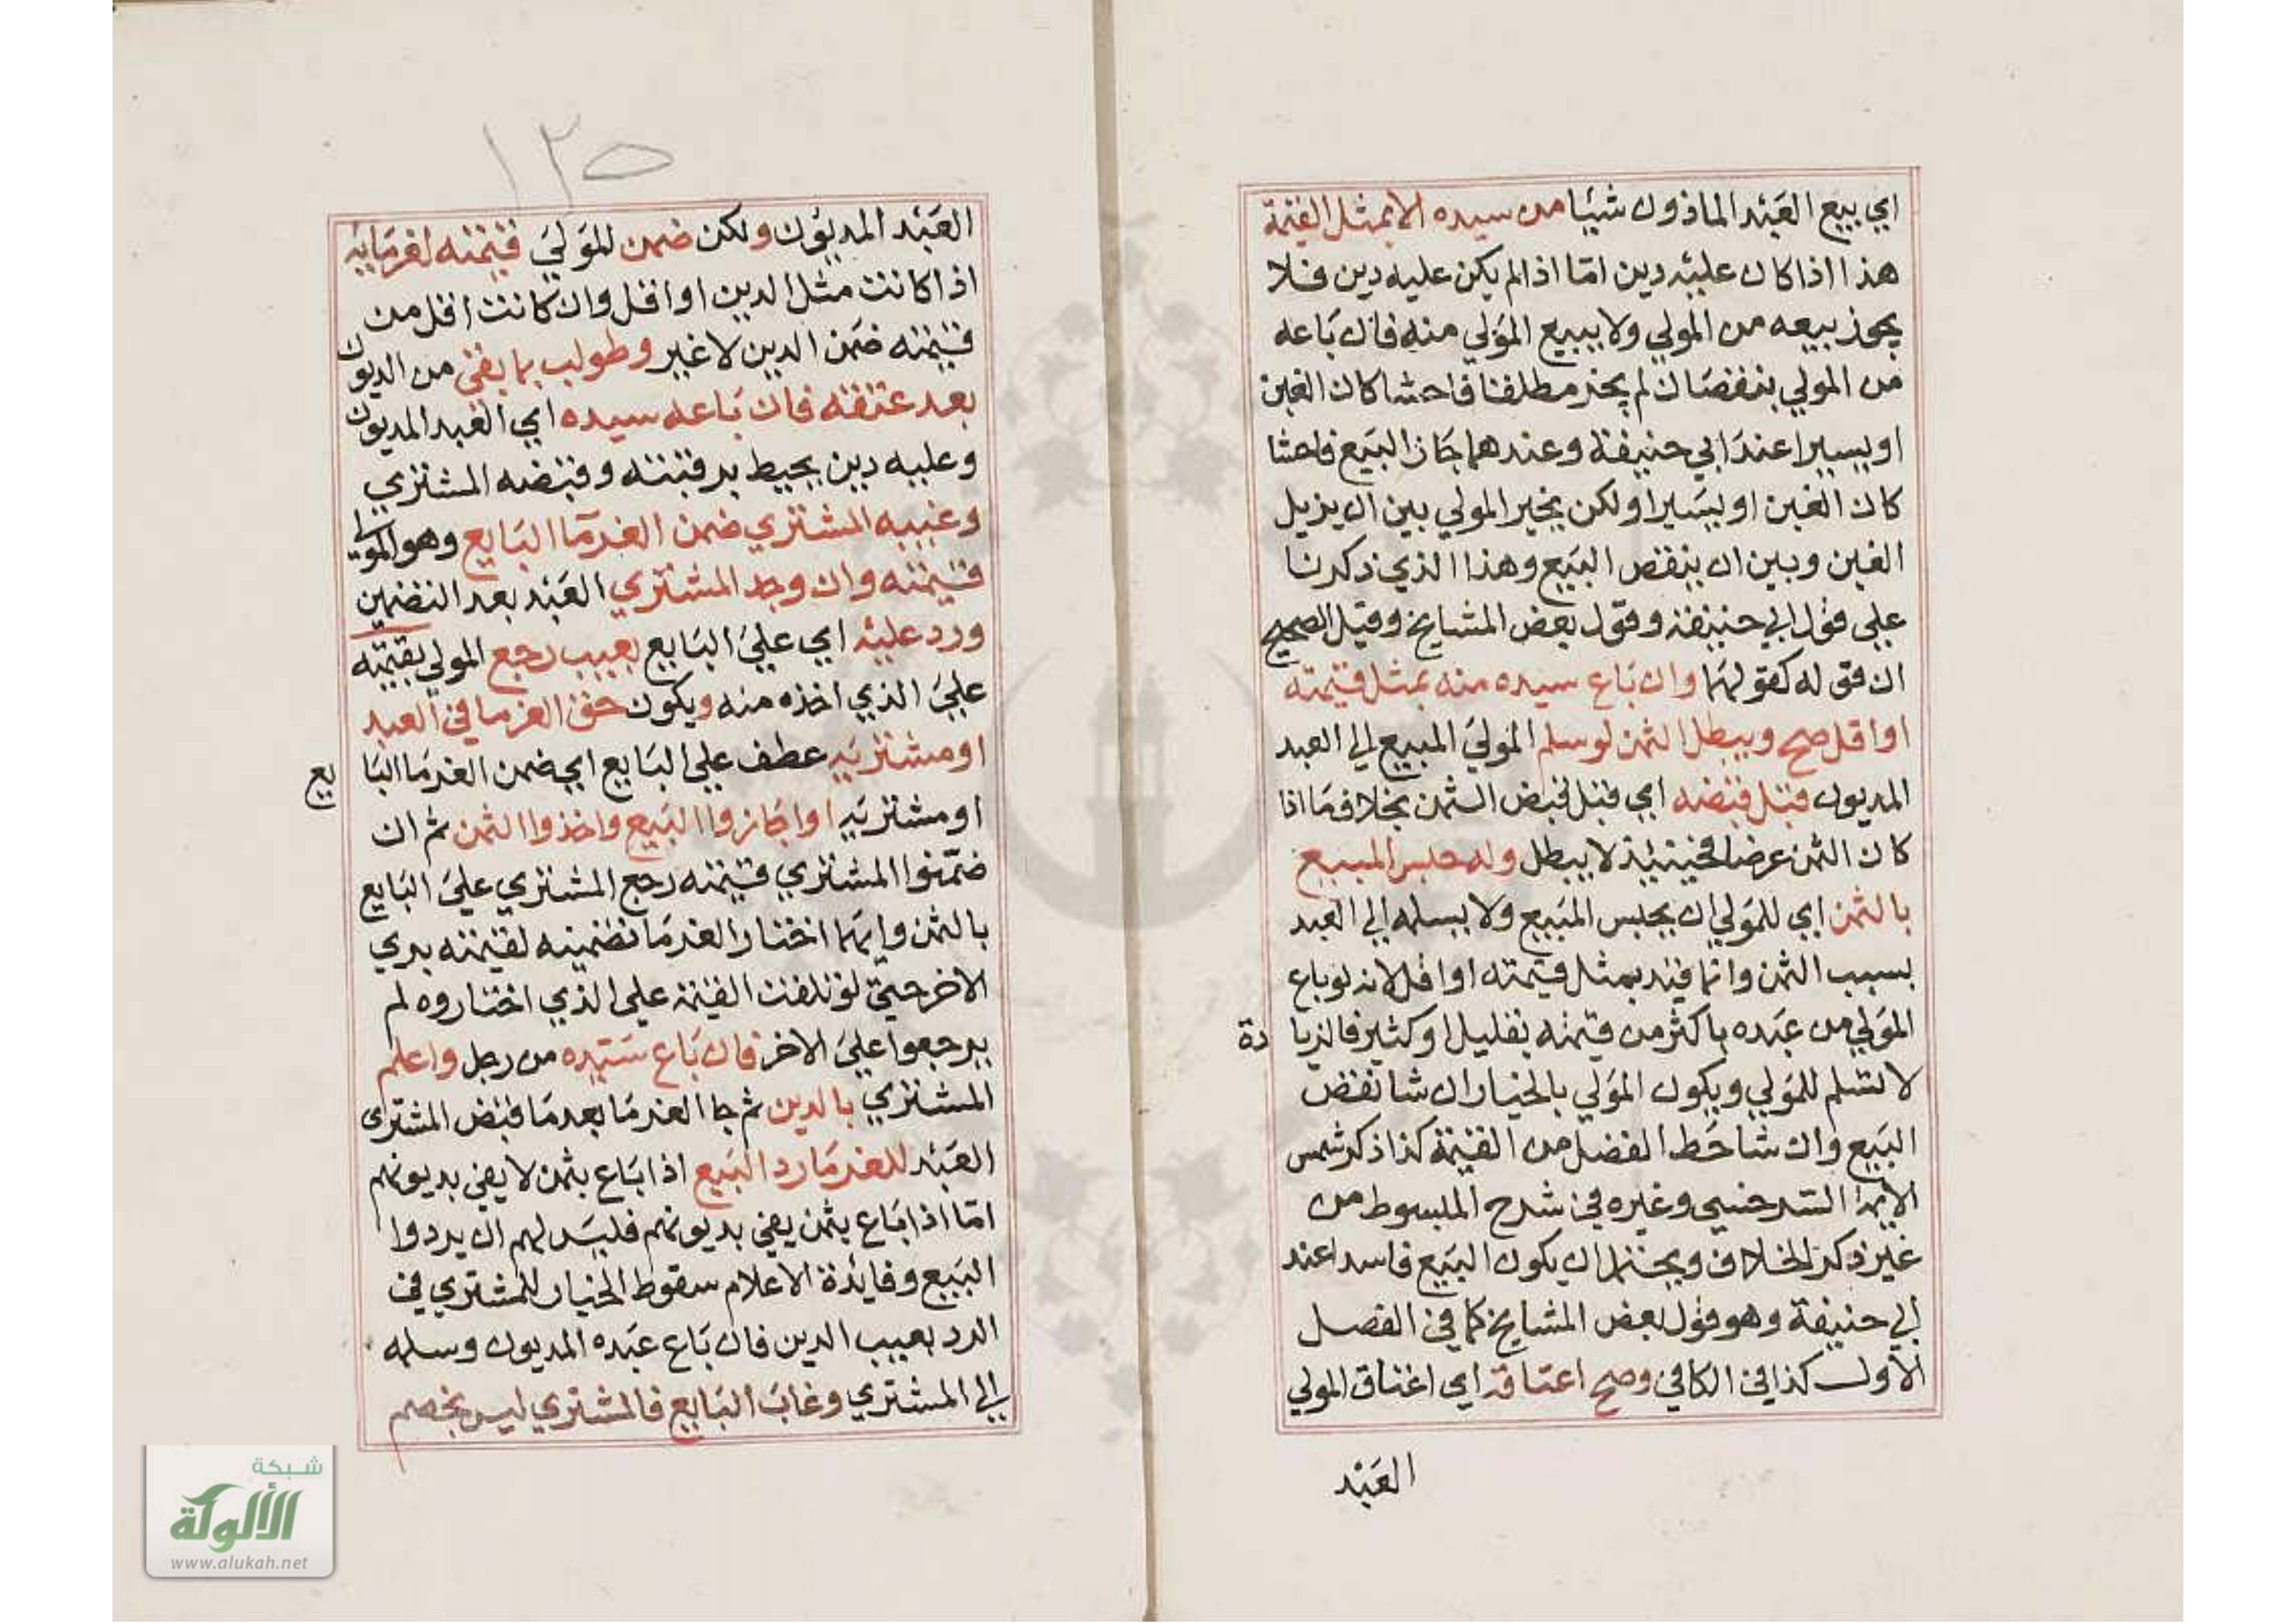 اي يبيع العبد الماذون شيئا من سيده الا بمثل القيمة
هذا اذا كان عليه دين اما اذا لم يكن عليه دين فلا
يجز بيعه من المولي ولا يبيع المولي منه فان باعه
من المولي بنقصان لم يجز مطلقا فاحشا كان الغبن
او يسيرا عند ابي حنيفة وعندهما جاز البيع فاحشا
كان الغبن او يسيرا ولكن يخير المولي بين ان يزيل
الغبن وبين ان ينقض البيع وهذا الذي ذكرنا
علي قول ابي حنيفة وقول بعض المشايخ وقيل الصحيح
ان قوله كقولهما وان باع سيده منه بمثل قيمته
او اقل صح ويبطل الثمن لو سلم المولي المبيع الي العبد
المديون قبل قبضه اي قبل قبض الثمن بخلاف ما اذا
كان الثمن عرضا فحينئذ لا يبطل وله حبس المبيع
بالثمن اي للمولي ان يحبس المبيع ولا يسلمه الي العبد
بسبب الثمن وانما قيد بمثل قيمته او اقل لانه لو باع
المولي من عبده باكثر من قيمته بقليل او كثير فالزيا دة
لا تسلم للمولي ويكون المولي بالخيار ان شا نقض
البيع وان شا حط الفضل من القيمة كذا ذكر شمس
الايمة السرخسي وغيره في شرح المبسوط من
غير ذكر الخلاف ويحتمل ان يكون البيع فاسدا عند
ابي حنيفة وهو قول بعض المشايخ كما في الفصل
الاول كذا في الكافي وصح اعتاقه اي اعتاق المولي
العبد
١٢٥
العبد المديون ولكن ضمن المولي قيمته لغرمايه
اذا كانت مثل الدين او اقل وان كانت اقل من
قيمته ضمن الدين لا غير وطولب بما بقي من الديون
بعد عتقه فان باعه سيده اي العبد المديون
وعليه دين يحيط برقبته وقبضه المشتري
وغيبه المشتري ضمن الغرما البايع وهو المولي
قيمته وان وجد المشتري العبد بعد التضمين
ورد عليه اي علي البايع بعيب رجع المولي بقيمته
علي الذي اخذه منه ويكون حق الغرما في العبد
او مشتريه عطف علي البايع اي ضمن الغرما البا يع
او مشتريه او اجازوا البيع واخذوا الثمن ثم ان
ضمنوا المشتري قيمته رجع المشتري علي البايع
بالثمن وايهما اختار الغرما تضمينه لقيمته بري
الاخر حتي لو تلفت القيمة علي الذي اختاروه لم
يرجعوا علي الاخر فان باع سيده من رجل واعلم
المشتري بالدين ثم جا الغرما بعد ما قبض المشتري
العبد للغرما رد البيع اذا باع بثمن لا يفي بديونهم
اما اذا باع بثمن يفي بديونهم فليس لهم ان يردوا
البيع وفايدة الاعلام سقوط الخيار للمشتري في
الرد بعيب الدين فان باع عبده المديون وسلمه
الي المشتري وغاب البايع فالمشتري ليس بخصم
شبكة
الألوكة
www.alukah.net